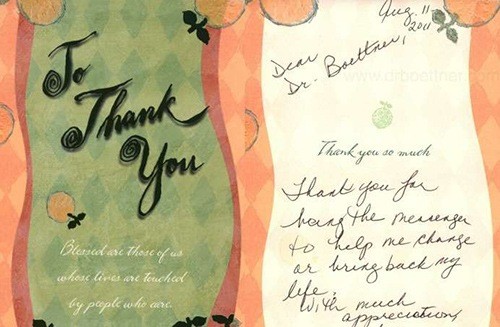 To
Thank
You
Blessed are those of us
whose lives are touched
by people who care.
Aug. 11
2011
Dear
Dr. Boettner,
www.drboettner.com
Thank you so much
Thank you for
being the messenger
to help me change
or bring back my
life.
With much
appreciation,